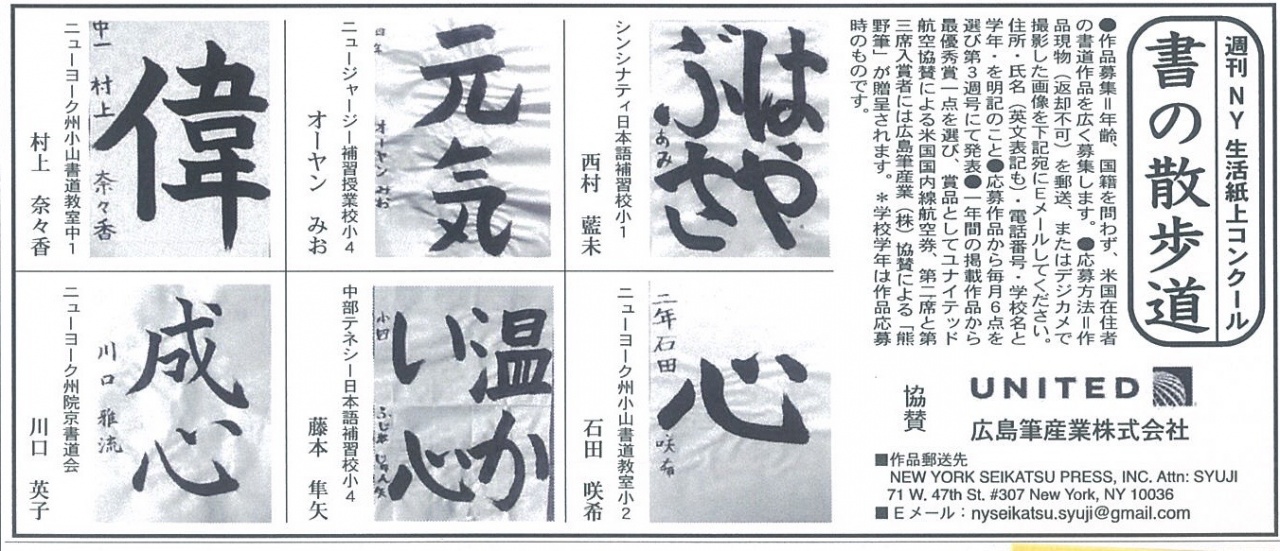 週刊NY生活紙上コンクール
書の散歩道
●作品募集＝年齢、国籍を問わず、米国在住者
の書道作品を広く募集します。●応募方法＝作
品現物（返却不可）を郵送、またはデジカメで
撮影した画像を下記宛にEメールしてください。
住所・氏名（英文表記も）・電話番号・学校名と
学年・を明記のこと●応募作品から毎月6点を
選び第3週号にて発表●一年間の掲載作品から
最優秀賞一点を選び、賞品としてユナイテッド
航空協賛による米国国内線航空券、第二席と第
三席入賞者には広島筆産業（株）協賛による「熊
野筆」が贈呈されます。＊学校学年は作品応募
時のものです。
協賛
UNITED
広島筆産業株式会社
■作品郵送先
NEW YORK SEIKATSU PRESS, INC. Attn: SYUJI
71 W. 47th St. #307 New York, NY 10036
■Eメール：nyseikatsu.syuji@gmail.com
はや
ぶさ
あみ
シンシナティ日本語補習校小1
西村 藍未
元気
四年 オーヤンみお
ニュージャージー補習授業校小4
オーヤン みお
偉
中一 村上 奈々香
ニューヨーク州小山書道教室中1
村上 奈々香
心
二年石田 咲希
ニューヨーク州小山書道教室小2
石田 咲希
温か
い心
小四
中部テネシー日本語補習校小4
藤本 隼矢
成心
川口 雅流
ニューヨーク州院京書道会
川口 英子